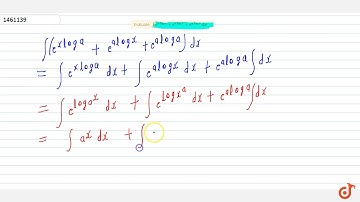 1461139
Evaluate:
∫(e^{x log a} + e^{a log x} + e^{a log a}) dx
= ∫e^{x log a} dx + ∫e^{a log x} dx + ∫e^{a log a} dx
= ∫e^{log a^x} dx + ∫e^{log x^a} dx + ∫e^{a log a} dx
= ∫a^x dx + ∫